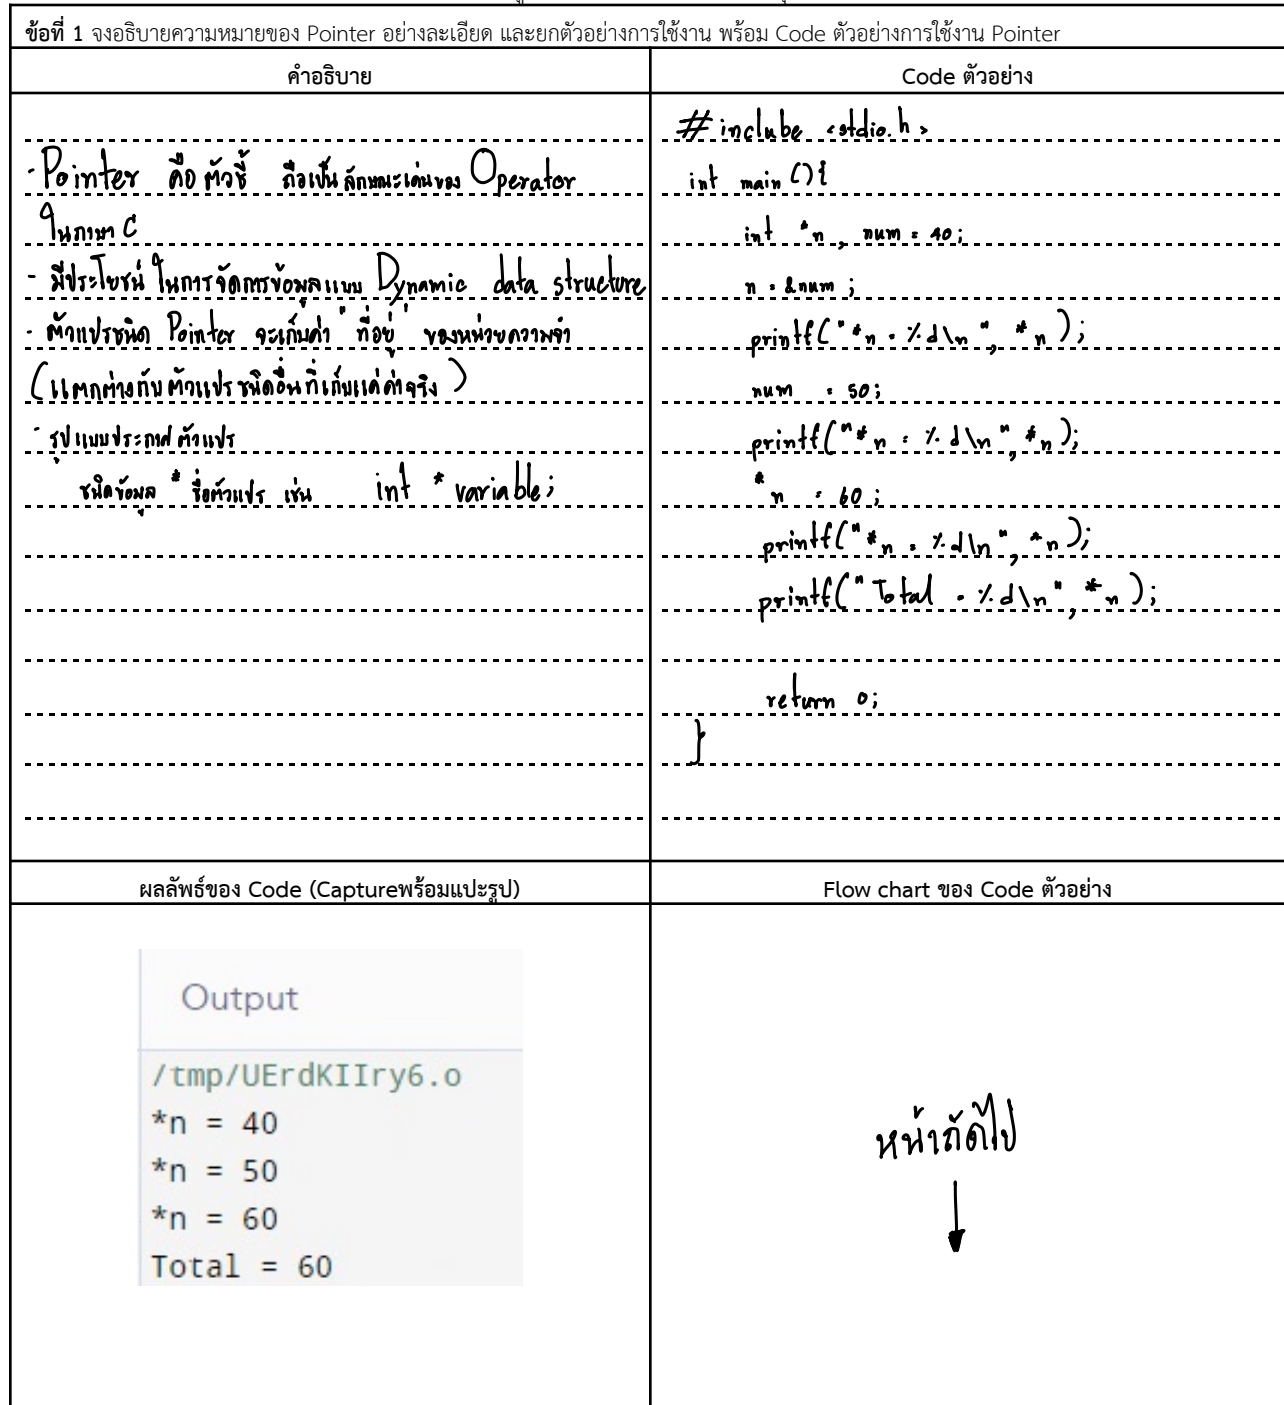 ข้อที่ 1 จงอธิบายความหมายของ Pointer อย่างละเอียด และยกตัวอย่างการใช้งาน พร้อม Code ตัวอย่างการใช้งาน Pointer
คำอธิบาย
- Pointer คือ ตัวชี้ ถือเป็นลักษณะเด่นของ Operator
ในภาษา C
- มีประโยชน์ ในการจัดการข้อมูลแบบ Dynamic data structure
- ตัวแปรชนิด Pointer จะเก็บค่า "ที่อยู่" ของหน่วยความจำ
(แตกต่างกับตัวแปรชนิดอื่นที่เก็บแค่ค่าจริง)
- รูปแบบประกาศตัวแปร
ชนิดข้อมูล * ชื่อตัวแปร เช่น int * variable;
Code ตัวอย่าง
#inclube <stdio.h>
int main (){
int *n , num = 40;
n = &num ;
printf("*n = %d\n", *n );
num = 50;
printf("*n = %d\n", *n);
*n = 60 ;
printf("*n = %d\n", *n );
printf("Total = %d\n", *n );
return 0;
}
ผลลัพธ์ของ Code (Captureพร้อมแปะรูป)
Output
/tmp/UErdKIIry6.o
*n = 40
*n = 50
*n = 60
Total = 60
Flow chart ของ Code ตัวอย่าง
หน้าถัดไป